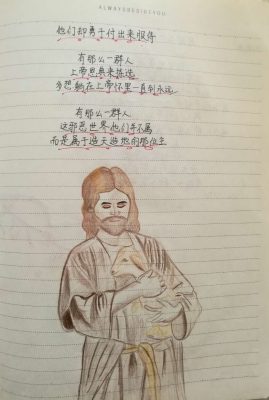 ALWAYSBESIDEYOU
他们却勇于付出来报偿
有那么一群人
上帝恩典来拣选
多想躺在上帝怀里一直到永远
有那么一群人
这邪恶世界他们年不属
而是属于造天造地的那位主